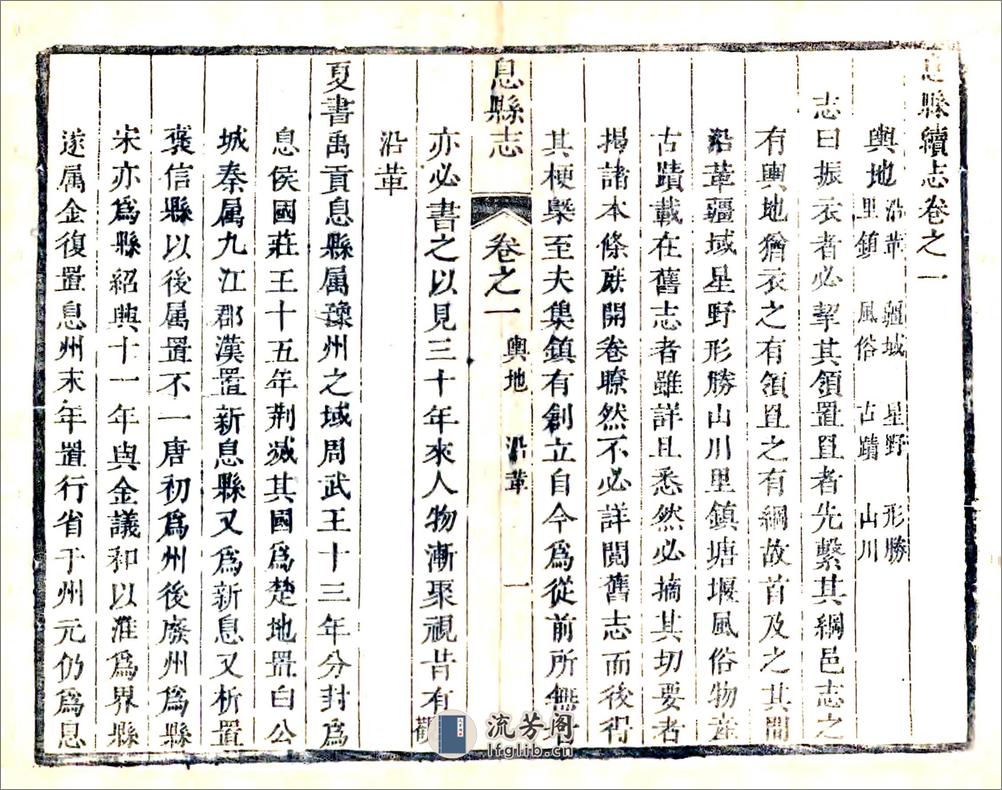 息縣續志卷之一
輿地 沿革 疆域 星野 形勝
里鎮 風俗 古蹟 山川
志曰振衣者必挈其領置罝者先繫其綱邑志之
有輿地猶衣之有領罝之有綱故首及之其間
沿革疆域星野形勝山川里鎮塘堰風俗物產
古蹟載在舊志者雖詳且悉然必摘其切要者
揭諸本條庶開卷瞭然不必詳閱舊志而後得
其梗槩至夫集鎮有創立自今爲從前所無
息縣志 卷之一 輿地 沿革 一
亦必書之以見三十年來人物漸聚視昔有觀
沿革
夏書禹貢息縣属豫州之域周武王十三年分封爲
息侯國莊王十五年荆滅其國爲楚地置白公
城秦属九江郡漢置新息縣又爲新息又析置
褒信縣以後属置不一唐初爲州後廢州爲縣
宋亦爲縣紹興十一年與金議和以淮爲界縣
遂属金復置息州末年置行省于州元仍爲息
流芳阁
lfglib.cn